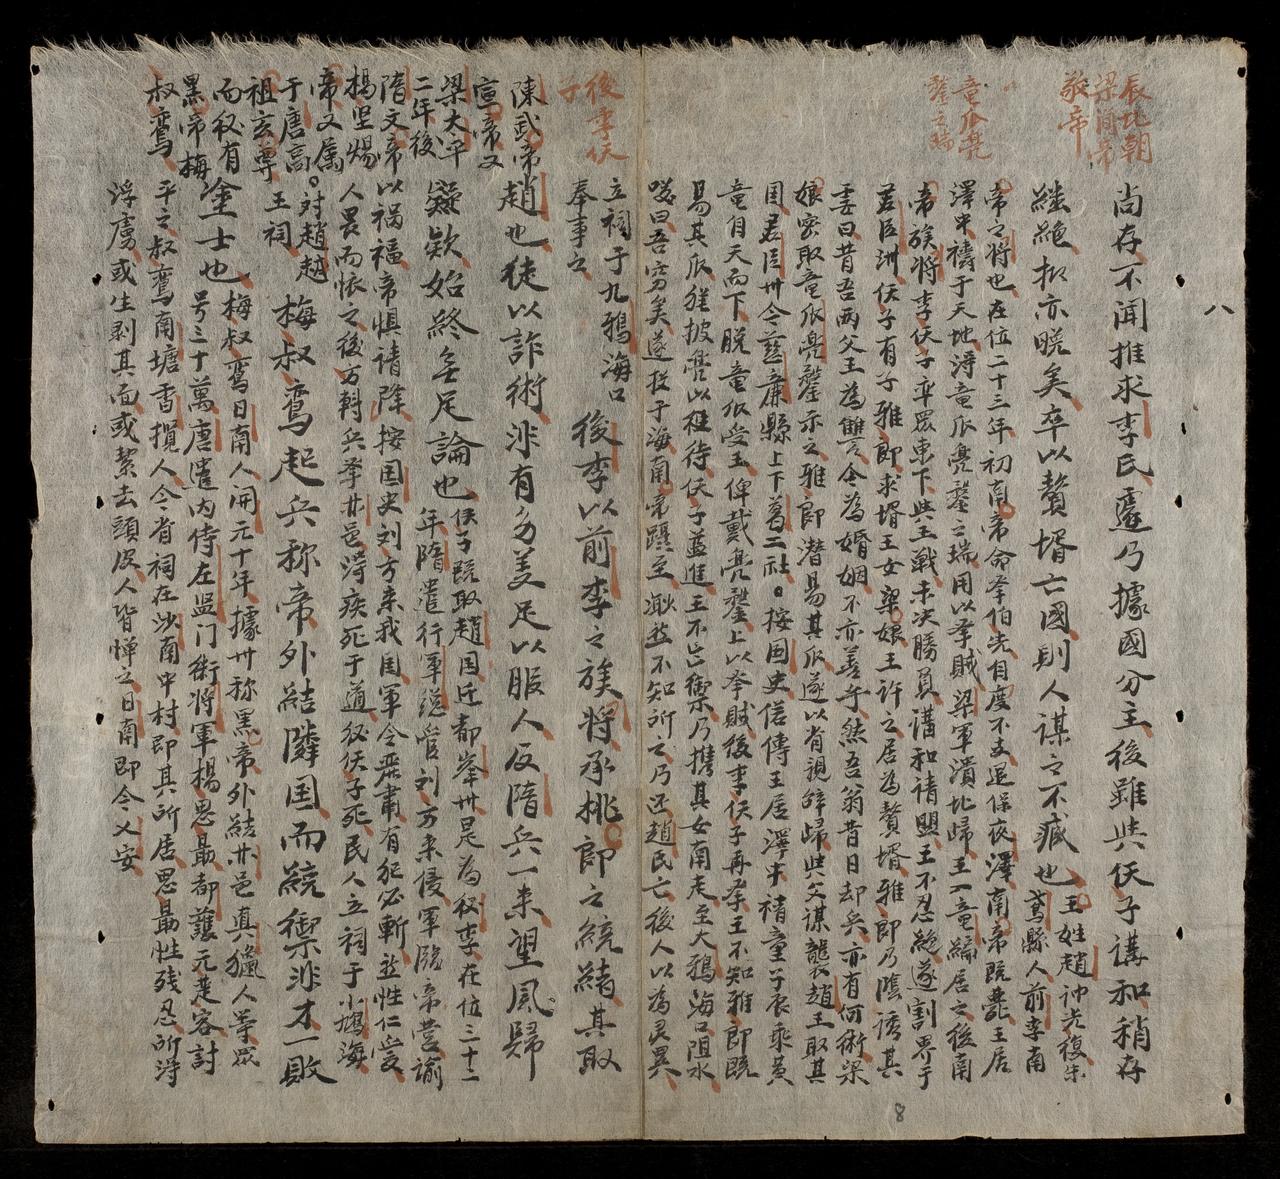 八
辰北朝
梁簡帝
敬帝
尚存不聞推求李氏遽乃據國分主後雖與佚子講和稍存
繼絕抑亦晩矣卒以贅壻亡國則人謀之不臧也王姓趙冲光復朱
鳶縣人前李南
帝之將也在位二十三年初南帝命拏伯先自度不支退保夜澤南帝既薨王居
竜爪兜
鍪之瑞
澤中禱于天地淂竜爪兜鍪之瑞用以拏賊梁軍潰北歸王入竜編居之後南
帝族將李佚子率眾東下與王戰未决勝負講和請盟王不忍絕遂割界于
君臣洲佚子有子雅郎求壻王女杲娘王許之居為贅壻雅郎乃陰誘其
妻曰昔吾兩父王為讐今為婚姻不亦善乎然吾翁昔日却兵亦有何術杲
娘密取竜爪兜鍪示之雅郎潜易其爪遂以省親辞歸與父謀襲趙王取其
国君臣州今慈廉縣上下葛二社。按国史信傳王居澤中禱童子衣乘黄
竜自天而下脱竜爪受王俾戴兜鍪上以拏賊後李佚子再拏王不知雅郎既
易其爪猶披兜以拒待佚子益進王不能禦乃携其女南走至大鴉海口阻水
嘆曰吾穷矣遂投于海南帝躡至渺茫不知所之乃还趙氏亡後人以為灵異
後李佚
子
立祠于九鴉海口
奉事之
後李以前李之族將承桃郎之統緒其取
趙也徒以詐術非有多美足以服人反隋兵一来望風歸
礙欵始終無足論也佚子既取趙国迁都峯州是為後李在位三十二
年隋遣行軍總管刘方来侵軍臨帝營諭
以祸福帝惧請降按国史刘方来我国軍令肅肅有犯必斬然性仁愛
人畏而懷之後方斡兵拏林邑淂疾死于道後佚子死民人立祠于小鴉海
。对趙越
王祠
陳武帝
宣帝又
梁太平
二年後
隋文帝
楊坚煬
帝又属
于唐高
祖玄尊
而後有
黑帝梅
叔鸞
梅叔鸞起兵称帝外結隣国而統禦非才一敗
塗士也梅叔鸞日南人開元十年據州称黑帝外結林邑真獵人等眾
号三十萬唐遣内侍左监门衛將軍楊思勗都護元楚客討
平之叔鸞南塘香攬人今有祠在沙南中村即其所居思勗性残忍所淂
浮虜或生剥其面或絜去頭皮人皆憚之日南即今乂安
8